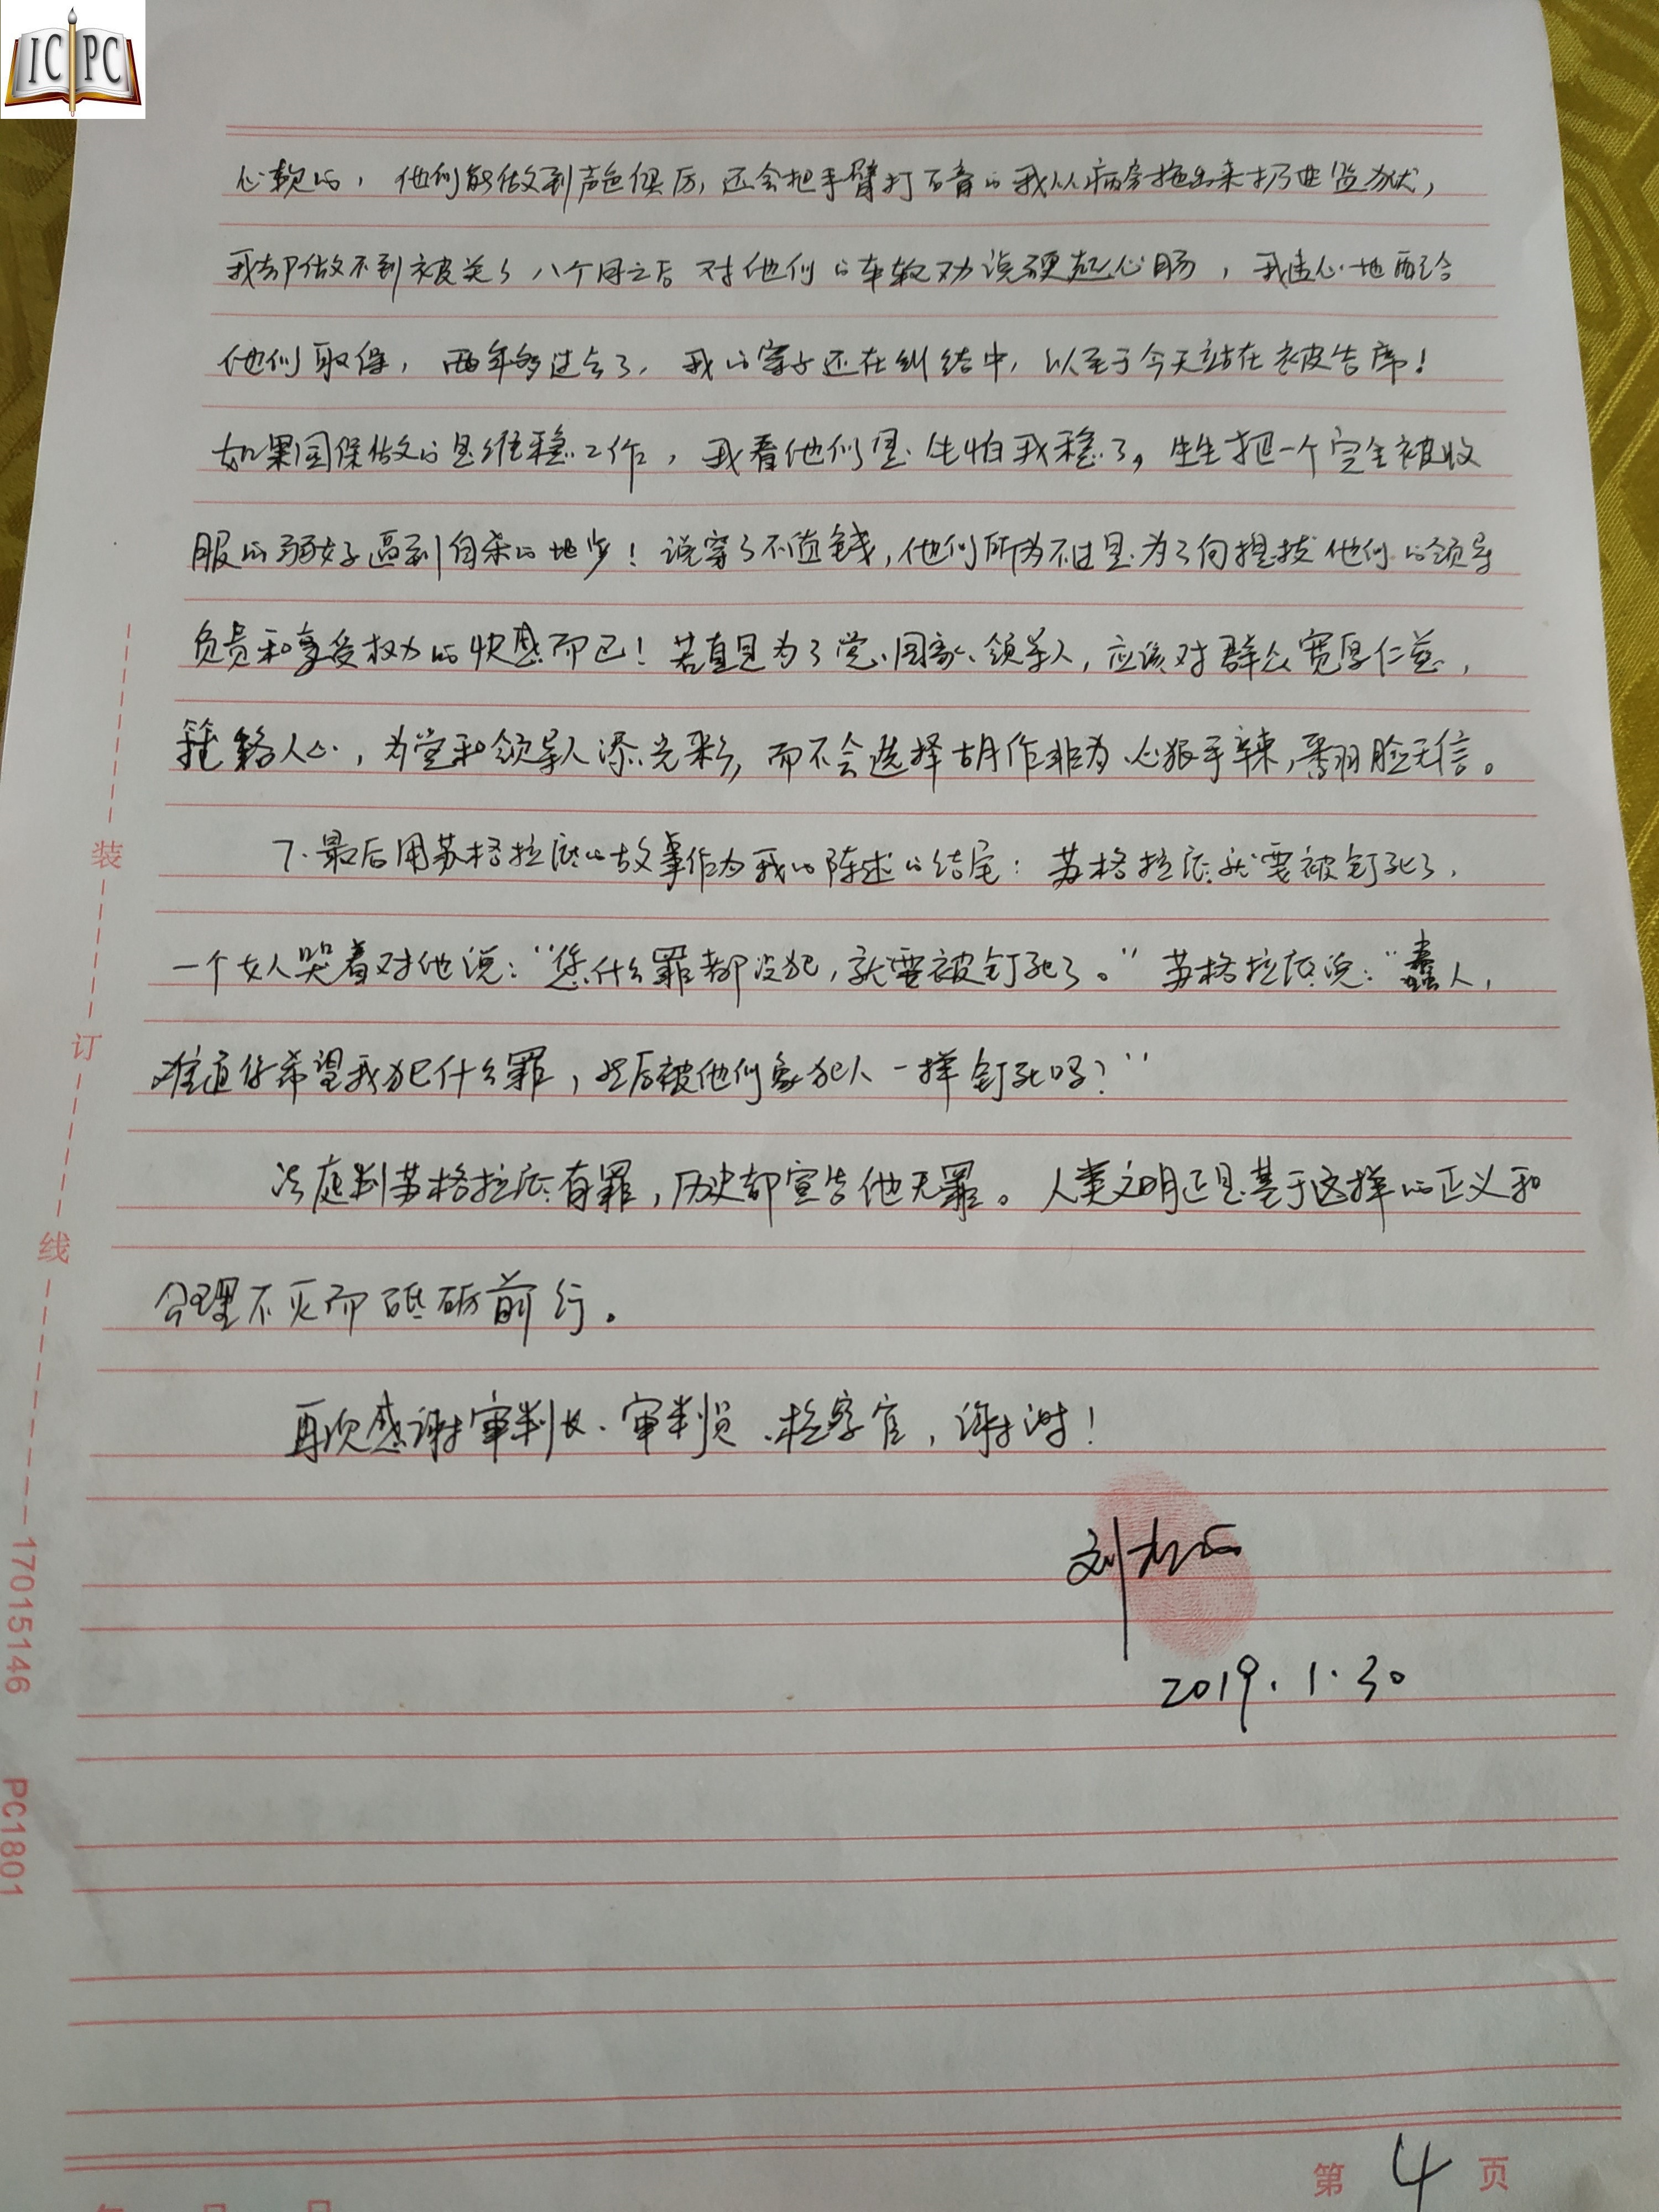 IC PC
心软的，他们能做到声色俱厉，还会把手臂打石膏的我从病房拖出来扔进监狱，
我却做不到被关了八个月之后对他们的车轮劝说硬起心肠，我违心地配合
他们取保，两年多过去了，我的案子还在纠结中，以至于今天站在被告席！
如果国保做的是维稳工作，我看他们是生怕我稳了，生生把一个完全被收
服的弱女子逼到自杀的地步！说穿了不值钱，他们所为不过是为了向提拔他们的领导
负责和享受权力的快感而已！若真是为了党、国家、领导人，应该对群众宽厚仁慈，
笼络人心，为党和领导人添光彩，而不会选择胡作非为、心狠手辣，翻脸无信。
7.最后用苏格拉底的故事作为我的陈述的结尾：苏格拉底就要被钉死了，
一个女人哭着对他说：“您什么罪都没犯，就要被钉死了。”苏格拉底说：“蠢人，
难道你希望我犯什么罪，然后被他们象犯人一样钉死吗？”
法庭判苏格拉底有罪，历史却宣告他无罪。人类文明正是基于这样的正义和
公理不灭而砥砺前行。
再次感谢审判长、审判员、检察官，谢谢！
刘
2019.1.30
装
订
线
17015146 PC1801
第 4 页